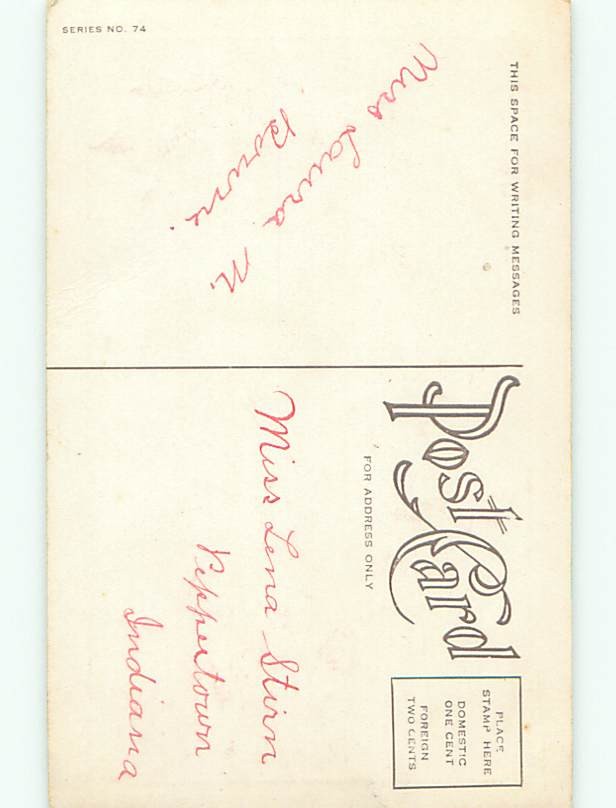 SERIES NO. 74
THIS SPACE FOR WRITING MESSAGES
Miss Laura M.
Post Card
FOR ADDRESS ONLY
PLACE
STAMP HERE
DOMESTIC
ONE CENT
FOREIGN
TWO CENTS
Miss Lena Stirn
Peppertown
Indiana